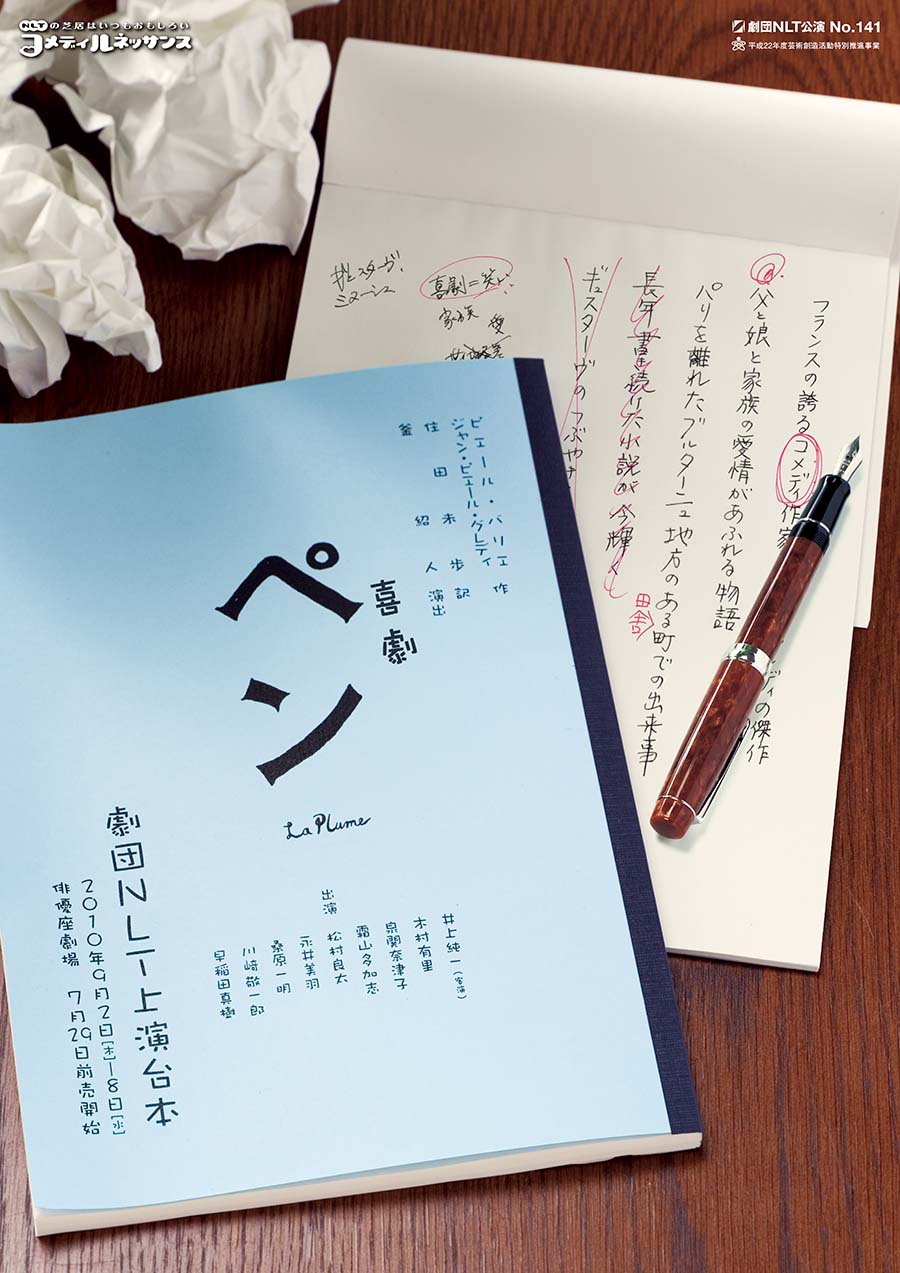 NLTの芝居はいつもおもしろい
コメディルネッサンス
劇団NLT公演 No.141
平成22年度芸術創造活動特別推進事業
フランスの誇るコメディ作家
ディの傑作
父と娘と家族の愛情があふれる物語
パリを離れたブルターニュ地方のある町での出来事
田舎
長年書き続けた小説が今輝く
ギュスターヴのつぶやき
喜劇=笑い
家族
愛
ギュスターヴ・
ミヌーシュ
ピエール・バリエ 作
ジャン・ピエール・グレディ
佳田未歩 訳
釜紹人 演出
喜劇
ペン
La Plume
井上純一(客演)
木村有里
泉関奈津子
霜山多加志
出演 松村良太
永井美羽
桑原一明
川﨑敬一郎
早稲田真樹
劇団NLT上演台本
2010年9月2日[木]—8日[水]
俳優座劇場 7月29日前売開始